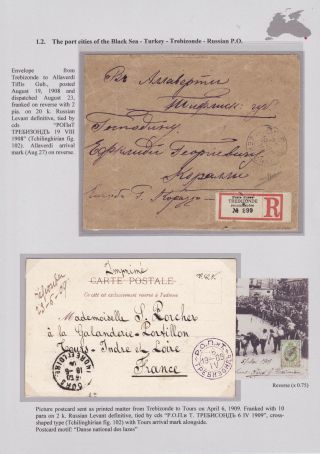 1.2. The port cities of the Black Sea - Turkey - Trebizonde - Russian P.O.
Envelope from
Trebizonde to Allaverdi
Tiflis Gub., posted
August 19, 1908 and
dispatched August 23,
franked on reverse with 2
pia. on 20 k. Russian
Levant definitive, tied by
cds "РОПиТ
ТРЕБИЗОНДЪ 19 VIII
1908" (Tchilinghirian fig.
102). Allaverdi arrival
mark (Aug 27) on reverse.
Въ Аллаверти
Тифлис. губ.
Господину
TREBIZONDE
№ 199
R
Imprimé
CARTE POSTALE
Ce côté est exclusivement réservé à l'adresse
Mademoiselle S. Porcher
à la Galanderie-Portillon
Tours - Indre et Loire
France
Р.О.П.и Т.
ТРЕБИЗОНДЪ
Reverse (x 0.75)
Picture postcard sent as printed matter from Trebizonde to Tours on April 6, 1909. Franked with 10
para on 2 k. Russian Levant definitive, tied by cds "Р.О.П.и Т. ТРЕБИСОНДЪ 6 IV 1909", cross-
shaped type (Tchilinghirian fig. 102) with Tours arrival mark alongside.
Postcard motif: "Danse national des lazes"